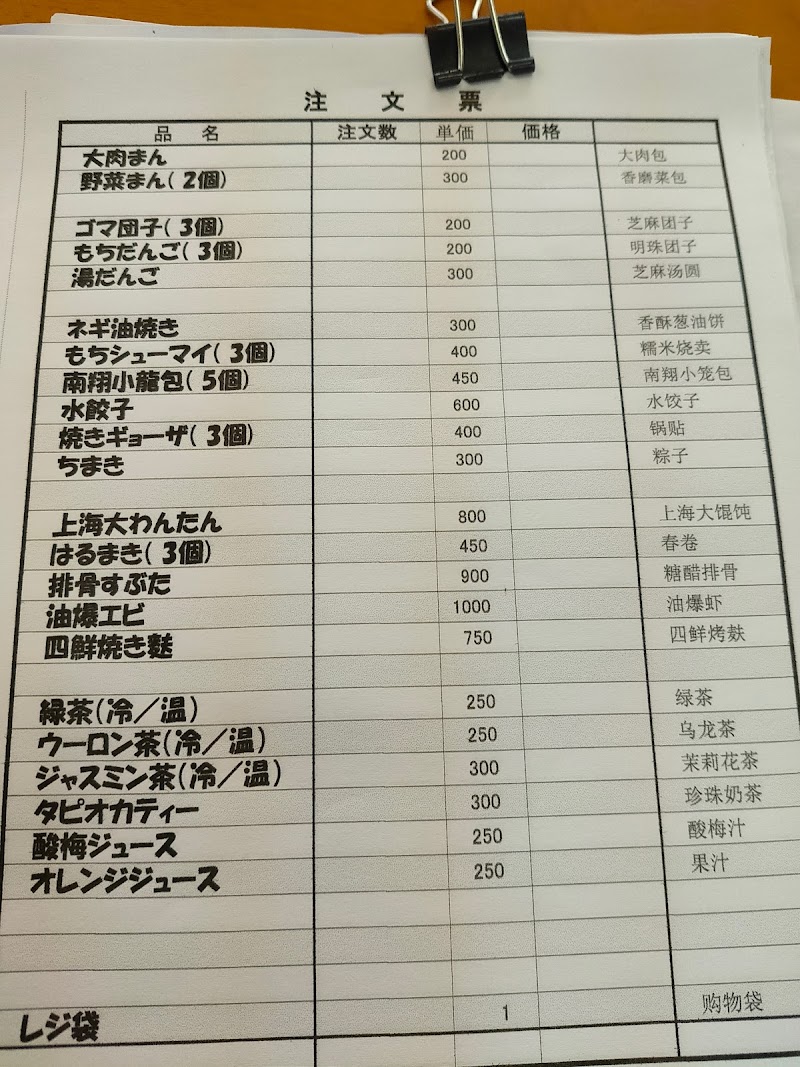 注 文 票
品 名 注文数 単価 価格
大肉まん 200 大肉包
野菜まん(2個) 300 香磨菜包
ゴマ団子(3個) 200 芝麻团子
もちだんご(3個) 200 明珠团子
湯だんご 300 芝麻汤圆
ネギ油焼き 300 香酥葱油饼
もちシューマイ(3個) 400 糯米烧卖
南翔小龍包(5個) 450 南翔小笼包
水餃子 600 水饺子
焼きギョーザ(3個) 400 锅贴
ちまき 300 粽子
上海大わんたん 800 上海大馄饨
はるまき(3個) 450 春卷
排骨すぶた 900 糖醋排骨
油爆エビ 1000 油爆虾
四鮮焼き麩 750 四鲜烤麸
緑茶(冷／温) 250 绿茶
ウーロン茶(冷／温) 250 乌龙茶
ジャスミン茶(冷／温) 300 茉莉花茶
タピオカティー 300 珍珠奶茶
酸梅ジュース 250 酸梅汁
オレンジジュース 250 果汁
レジ袋 1 购物袋